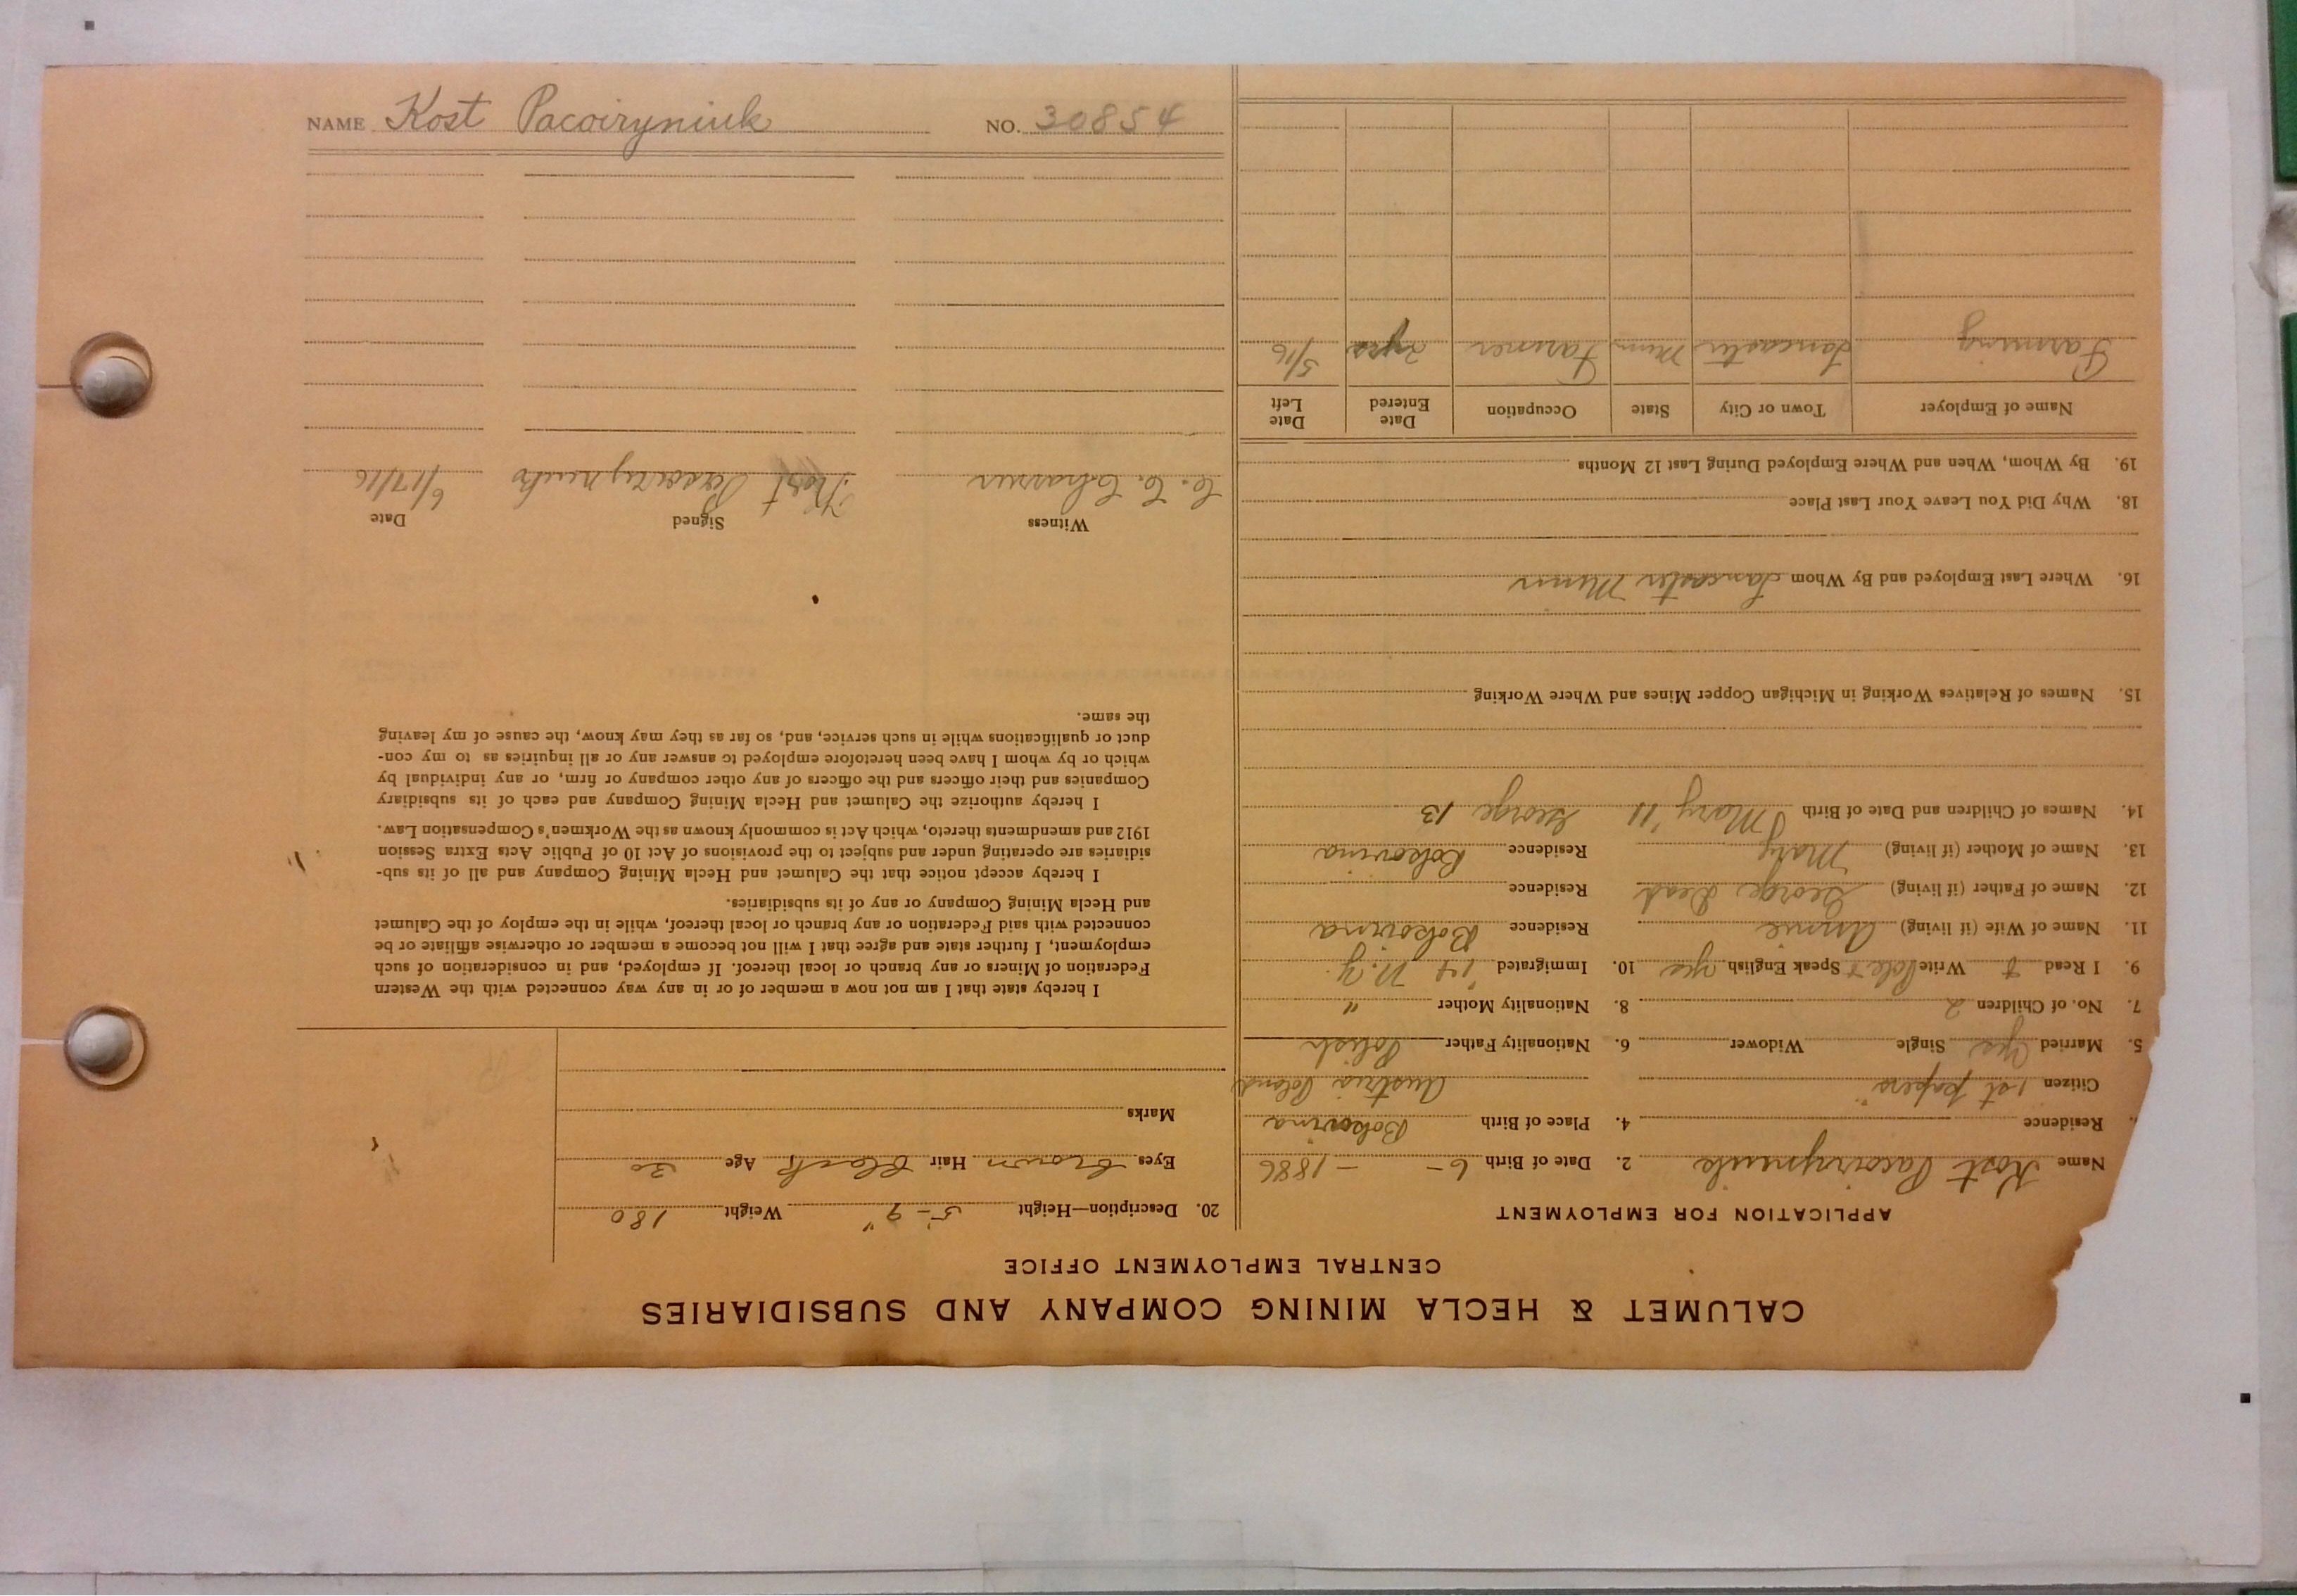 NAME Kost Pacoiryniuk NO. 30854
CALUMET & HECLA MINING COMPANY AND SUBSIDIARIES
CENTRAL EMPLOYMENT OFFICE
APPLICATION FOR EMPLOYMENT
Name Kost Pacoiryniuk 2. Date of Birth 6 - - 1886
Residence 4. Place of Birth Bokovina
Citizen 1st papers Austria Poland
5. Married yes Single Widower 6. Nationality Father Polish
7. No. of Children 2 8. Nationality Mother "
9. I Read + Write Speak English yes 10. Immigrated N.Y.
11. Name of Wife (if living) Annie Residence Bokovina
12. Name of Father (if living) George Dead Residence
13. Name of Mother (if living) Mary Residence Bokovina
14. Names of Children and Date of Birth Mary '11 George 13
15. Names of Relatives Working in Michigan Copper Mines and Where Working
16. Where Last Employed and By Whom Lancaster Minn
18. Why Did You Leave Your Last Place
19. By Whom, When and Where Employed During Last 12 Months
Name of Employer Town or City State Occupation Date Entered Date Left
Farming Lancaster Minn Farmer 2 yrs 5/16
20. Description—Height 5-9" Weight 180
Eyes Brown Hair Black Age 30
Marks
I hereby state that I am not now a member of or in any way connected with the Western
Federation of Miners or any branch or local thereof. If employed, and in consideration of such
employment, I further state and agree that I will not become a member or otherwise affiliate or be
connected with said Federation or any branch or local thereof, while in the employ of the Calumet
and Hecla Mining Company or any of its subsidiaries.
I hereby accept notice that the Calumet and Hecla Mining Company and all of its sub-
sidiaries are operating under and subject to the provisions of Act 10 of Public Acts Extra Session
1912 and amendments thereto, which Act is commonly known as the Workmen's Compensation Law.
I hereby authorize the Calumet and Hecla Mining Company and each of its subsidiary
Companies and their officers and the officers of any other company or firm, or any individual by
which or by whom I have been heretofore employed to answer any or all inquiries as to my con-
duct or qualifications while in such service, and, so far as they may know, the cause of my leaving
the same.
Witness Signed Date
Kost 6/17/16